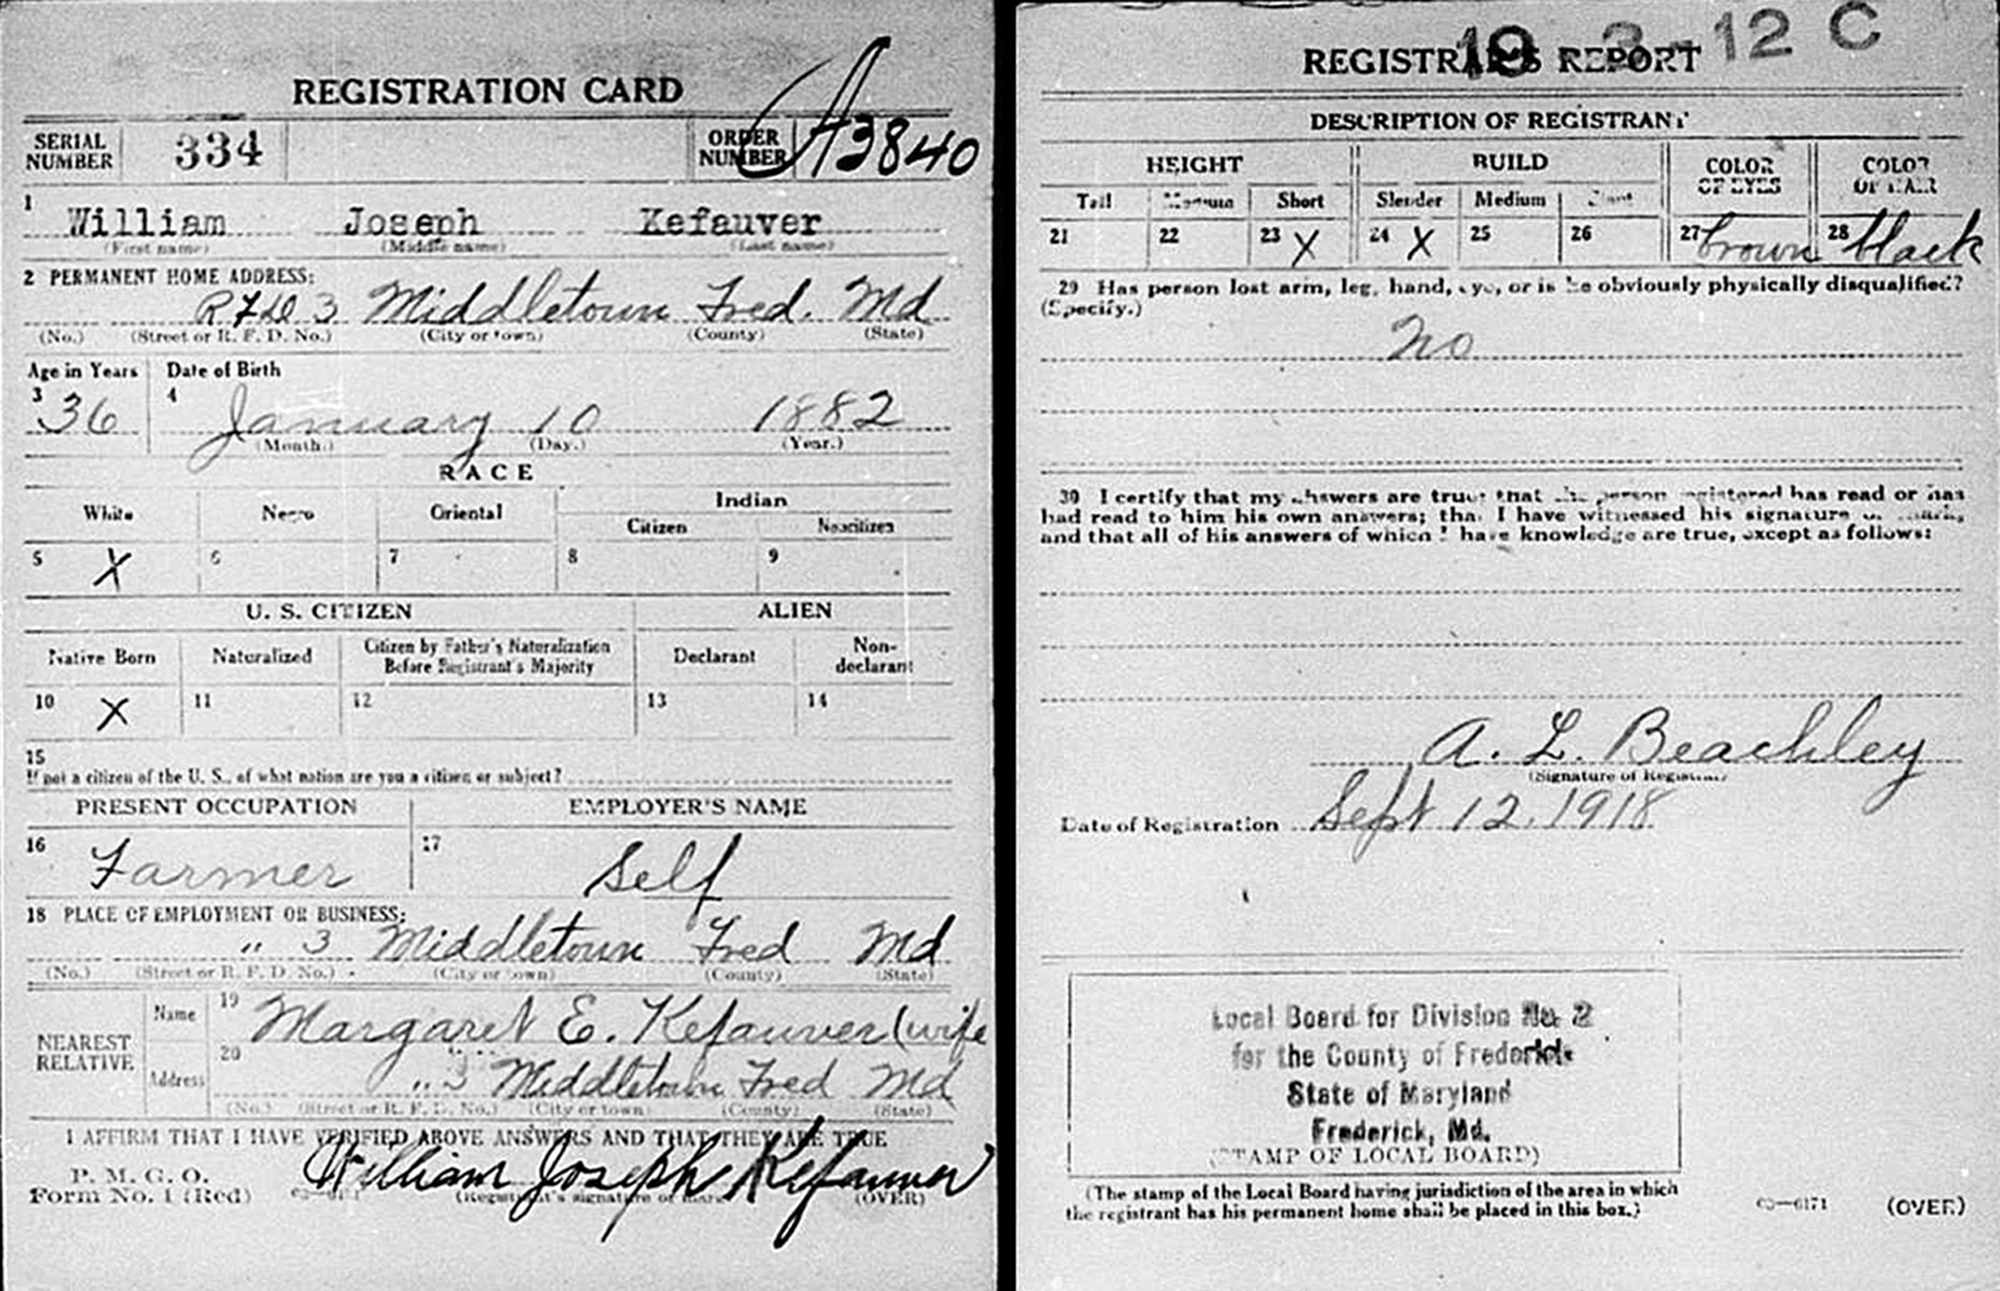 REGISTRATION CARD
SERIAL NUMBER 334 ORDER NUMBER A3840
1 William Joseph Kefauver
(First name) (Middle name) (Last name)
2 PERMANENT HOME ADDRESS:
R F D 3 Middletown Fred. Md
(No.) (Street or R. F. D. No.) (City or town) (County) (State)
Age in Years Date of Birth
3 36 4 January 10 1882
(Month.) (Day.) (Year.)
RACE
White Negro Oriental Indian
Citizen Noncitizen
5 X 6 7 8 9
U. S. CITIZEN ALIEN
Native Born Naturalized Citizen by Father's Naturalization Before Registrant's Majority Declarant Non-declarant
10 X 11 12 13 14
15
If not a citizen of the U. S., of what nation are you a citizen or subject?
PRESENT OCCUPATION EMPLOYER'S NAME
16 Farmer 17 Self
18 PLACE OF EMPLOYMENT OR BUSINESS:
" 3 Middletown Fred Md
(No.) (Street or R. F. D. No.) (City or town) (County) (State)
NEAREST RELATIVE
Name 19 Margaret E. Kefauver (wife
Address 20 " 3 Middletown Fred Md
(No.) (Street or R. F. D. No.) (City or town) (County) (State)
I AFFIRM THAT I HAVE VERIFIED ABOVE ANSWERS AND THAT THEY ARE TRUE
P. M. G. O.
Form No. 1 (Red) William Joseph Kefauver
(Registrant's signature or mark) (OVER)
19 3 - 12 C
REGISTRAR'S REPORT
DESCRIPTION OF REGISTRANT
HEIGHT BUILD COLOR OF EYES COLOR OF HAIR
Tall Medium Short Slender Medium Stout
21 22 23 X 24 X 25 26 27 brown 28 black
29 Has person lost arm, leg, hand, eye, or is he obviously physically disqualified?
(Specify.)
No
30 I certify that my answers are true; that the person registered has read or has
had read to him his own answers; that I have witnessed his signature or mark,
and that all of his answers of which I have knowledge are true, except as follows:
A. L. Beachley
(Signature of Registrar)
Date of Registration Sept 12. 1918
Local Board for Division No. 2
for the County of Frederick
State of Maryland
Frederick, Md.
(STAMP OF LOCAL BOARD)
(The stamp of the Local Board having jurisdiction of the area in which
the registrant has his permanent home shall be placed in this box.)
03—6171 (OVER)